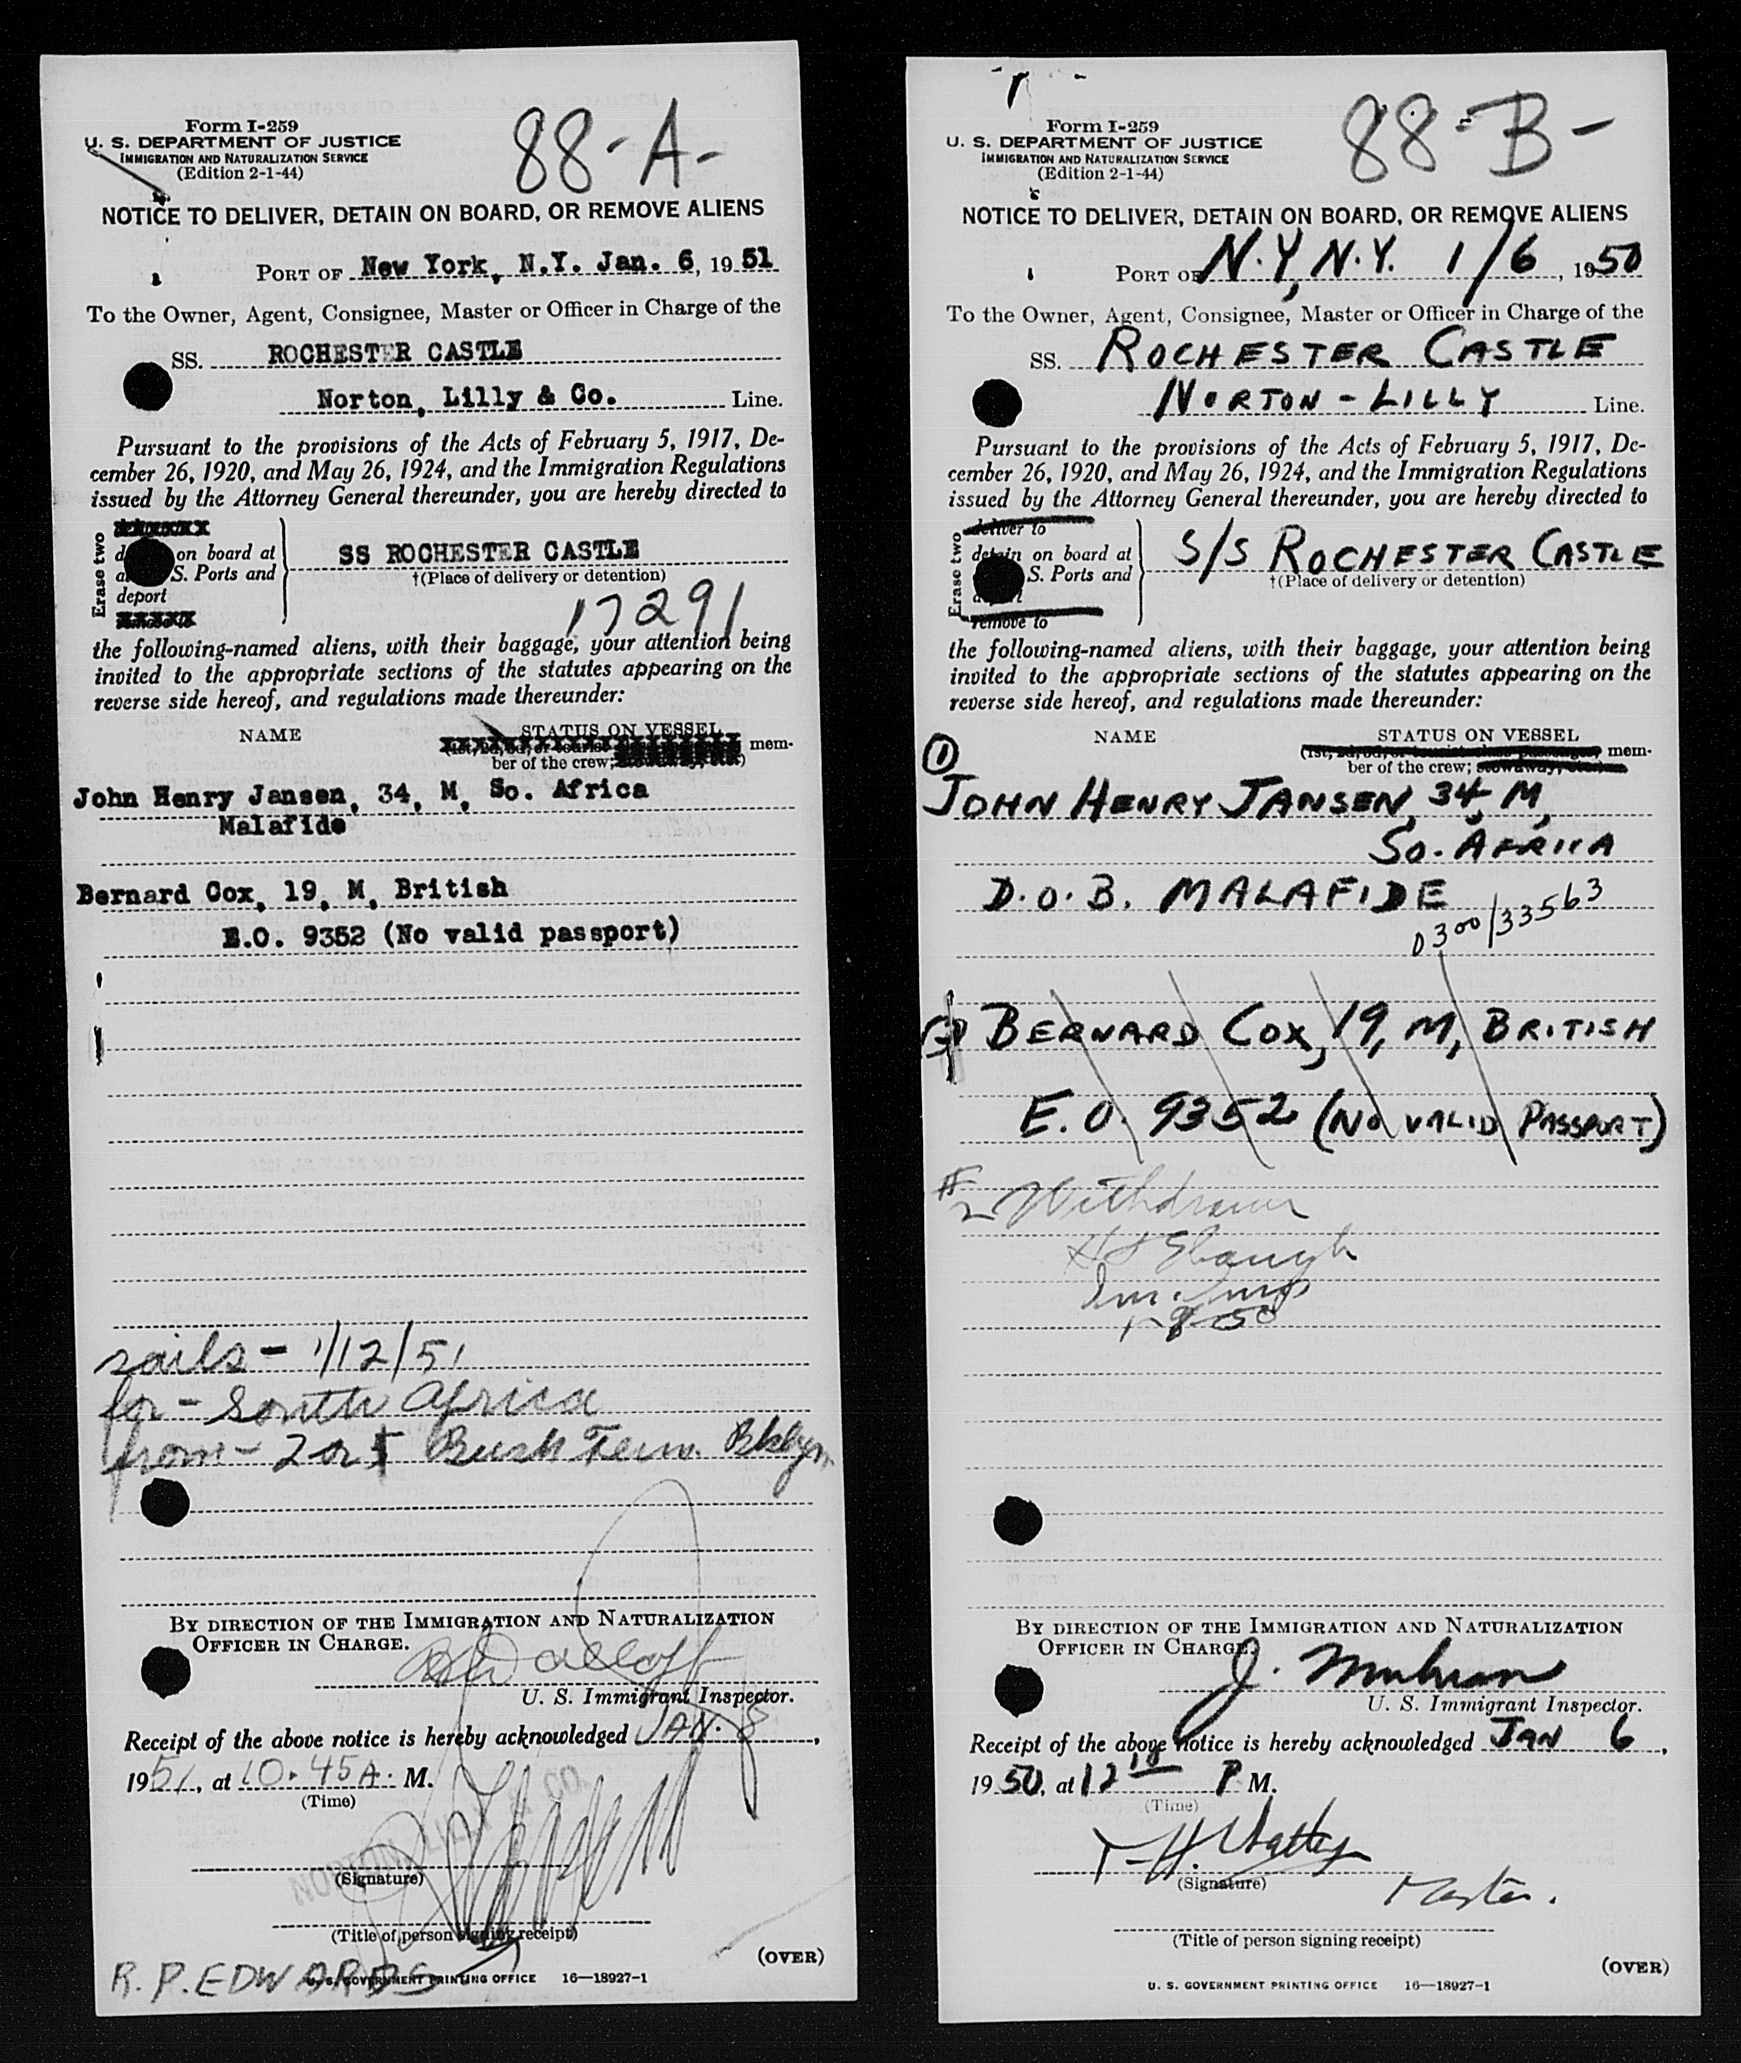 Form I-259
U. S. DEPARTMENT OF JUSTICE
IMMIGRATION AND NATURALIZATION SERVICE
(Edition 2-1-44)
88-A-
NOTICE TO DELIVER, DETAIN ON BOARD, OR REMOVE ALIENS
PORT OF New York, N.Y. Jan. 6, 1951
To the Owner, Agent, Consignee, Master or Officer in Charge of the
SS. ROCHESTER CASTLE
Norton, Lilly & Co. Line.
Pursuant to the provisions of the Acts of February 5, 1917, De-
cember 26, 1920, and May 26, 1924, and the Immigration Regulations
issued by the Attorney General thereunder, you are hereby directed to
Erase two
on board at
S. Ports and
deport
SS ROCHESTER CASTLE
†(Place of delivery or detention)
17291
the following-named aliens, with their baggage, your attention being
invited to the appropriate sections of the statutes appearing on the
reverse side hereof, and regulations made thereunder:
NAME STATUS ON VESSEL
mem-
ber of the crew;
John Henry Jansen, 34, M, So. Africa
Malafide
Bernard Cox, 19, M, British
E.O. 9352 (No valid passport)
sails - 1/12/51
for - South Africa
from - 2 or 5 Bush Term. Bklyn
BY DIRECTION OF THE IMMIGRATION AND NATURALIZATION
OFFICER IN CHARGE.
U. S. Immigrant Inspector.
Receipt of the above notice is hereby acknowledged JAN. 8,
1951, at 10.45 A. M.
(Time)
NORTON LILLY & CO.
(Signature)
(Title of person signing receipt)
(OVER)
R. P. EDWARDS
U. S. GOVERNMENT PRINTING OFFICE 16—18927-1
Form I-259
U. S. DEPARTMENT OF JUSTICE
IMMIGRATION AND NATURALIZATION SERVICE
(Edition 2-1-44)
88-B-
NOTICE TO DELIVER, DETAIN ON BOARD, OR REMOVE ALIENS
PORT OF N.Y, N.Y. 1/6, 1950
To the Owner, Agent, Consignee, Master or Officer in Charge of the
SS. ROCHESTER CASTLE
NORTON-LILLY Line.
Pursuant to the provisions of the Acts of February 5, 1917, De-
cember 26, 1920, and May 26, 1924, and the Immigration Regulations
issued by the Attorney General thereunder, you are hereby directed to
Erase two
deliver to
detain on board at
S. Ports and
remove to
S/S ROCHESTER CASTLE
†(Place of delivery or detention)
the following-named aliens, with their baggage, your attention being
invited to the appropriate sections of the statutes appearing on the
reverse side hereof, and regulations made thereunder:
NAME STATUS ON VESSEL
(1st, 2d, 3d, or tourist class passenger, mem-
ber of the crew; stowaway, etc.)
1 JOHN HENRY JANSEN, 34, M,
SO. AFRICA
D.O.B. MALAFIDE
0300/33563
BERNARD COX, 19, M, BRITISH
E.O. 9352 (NO VALID PASSPORT)
#2 Withdrawn
1-8-50
BY DIRECTION OF THE IMMIGRATION AND NATURALIZATION
OFFICER IN CHARGE.
U. S. Immigrant Inspector.
Receipt of the above notice is hereby acknowledged JAN 6,
1950, at 12 10 P M.
(Time)
(Signature)
Master.
(Title of person signing receipt)
(OVER)
U. S. GOVERNMENT PRINTING OFFICE 16—18927-1